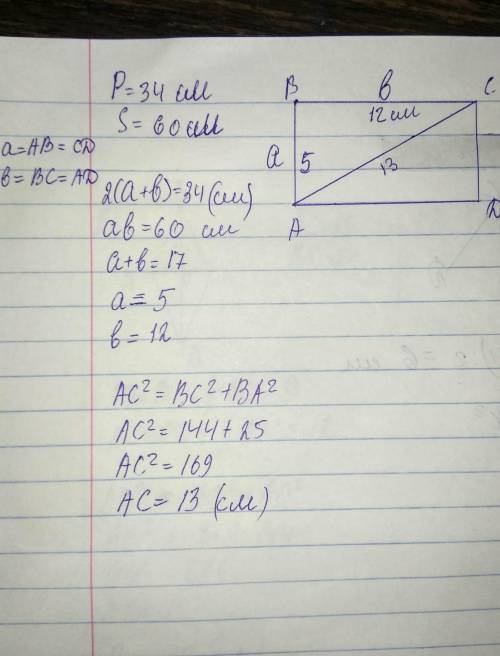 P = 34 см
S = 60 см
a = AB = CD
b = BC = AD
2(a+b) = 34 (см)
ab = 60 см
a+b = 17
a = 5
b = 12
AC² = BC² + BA²
AC² = 144 + 25
AC² = 169
AC = 13 (см)
B b C
12 см
a 5 13
A D